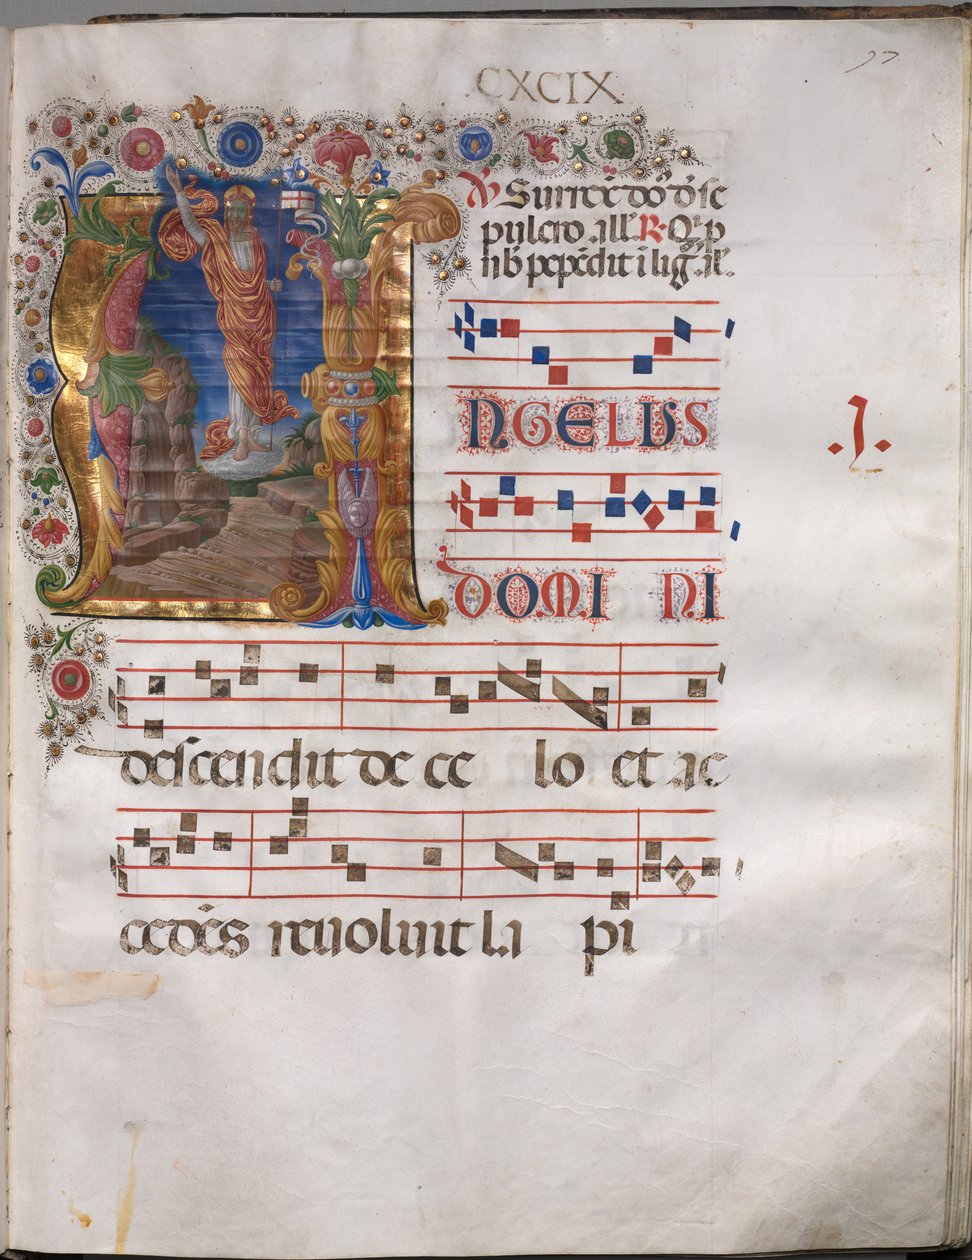 CXCIX
97
℣ Surrexit dn̄s de se
pulcro. all'a. ℟. Qui p
nob̄ pepēdit i lig. all'.
NGELUS
.J.
DOMI NI
descendit de ce lo et ac
cedēs revolvit la pi